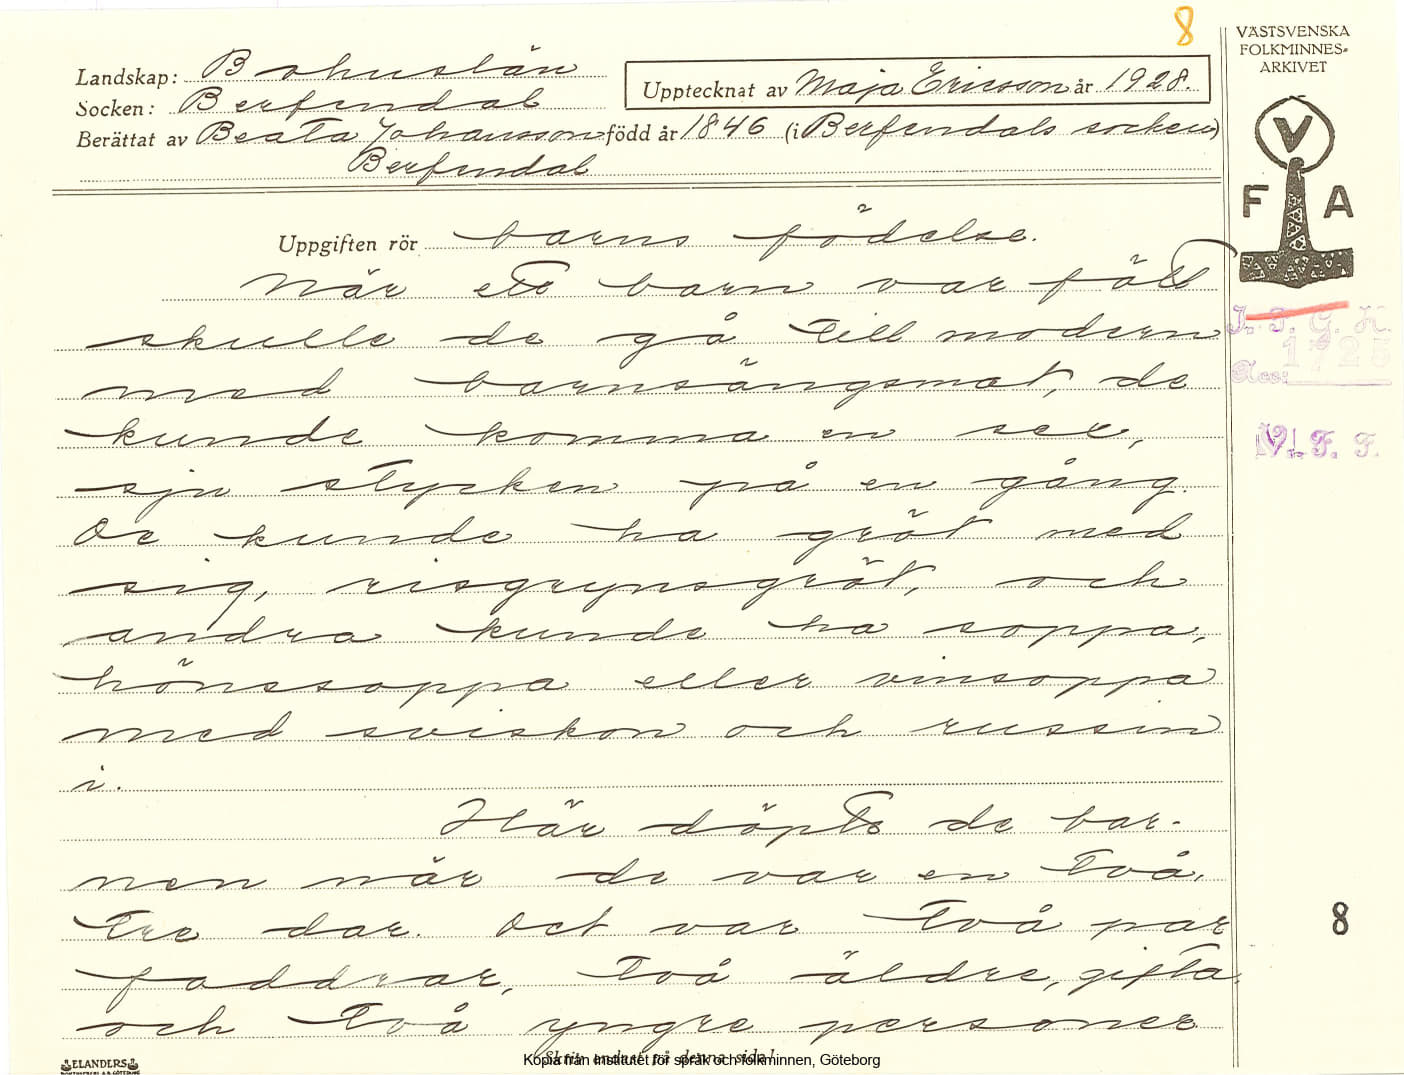 8
VÄSTSVENSKA
FOLKMINNES-
ARKIVET
Landskap: Bohuslän
Socken: Berfendal
Upptecknat av Maja Ericsson år 1928.
Berättat av Beata Johansson född år 1846 (i Berfendals socken)
Berfendal
V
F A
Uppgiften rör barns födelse.
När ett barn var fött
skulle de gå till modern
med barnsängsmat, de
kunde komma en sex,
sju stycken på en gång.
De kunde ha gröt med
sig, risgrynsgröt, och
andra kunde ha soppa,
hönssoppa eller vinsoppa
med sviskon och russin
i.
Här döpte de bar-
nen när de var en två,
tre dar. Det var två par
faddrar, två äldre, gifta,
och två yngre personer
I. S. G. H.
1725
Acc:
V. F. F.
8
Skriv endast på denna sida!
Kopia från Institutet för språk och folkminnen, Göteborg
ELANDERS